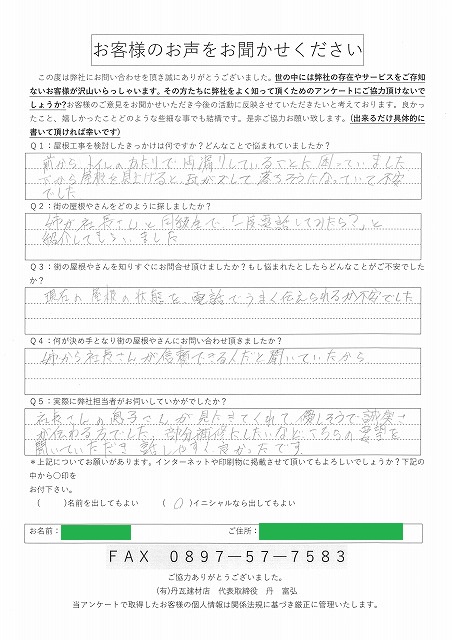 お客様のお声をお聞かせください
この度は弊社にお問い合わせを頂き誠にありがとうございました。世の中には弊社の存在やサービスをご存知
ないお客様が沢山いらっしゃいます。その方たちに弊社をよく知って頂くためのアンケートにご協力頂けないで
しょうか?お客様のご意見をお聞かせいただき今後の活動に反映させていただきたいと考えております。良かっ
たこと、嬉しかったことどのような些細な事でも結構です。是非ご協力お願い致します。(出来るだけ具体的に
書いて頂ければ幸いです)
Q1:屋根工事を検討したきっかけは何ですか?どんなことで悩まれていましたか?
前から、トイレのあたりで雨漏りしていることに困っていました
下から屋根を見上げると、瓦がズレして落ちそうになっていて不安
でした
Q2:街の屋根やさんをどのように探しましたか?
姉が社長さんと同級生で「一度電話してみたら?」と
紹介してもらいました
Q3:街の屋根やさんを知りすぐにお問合せ頂けましたか?もし悩まれたとしたらどんなことがご不安でした
か?
現在の屋根の状態を、電話でうまく伝えられるか不安でした
Q4:何が決め手となり街の屋根やさんにお問い合わせ頂きましたか?
姉から社長さんが信頼できる人だと聞いていたから
Q5:実際に弊社担当者がお伺いしていかがでしたか?
社長さんの息子さんが見にきてくれて、優しそうで誠実さ
が伝わる方でした。部分補修にしたいなど、こちらの要望を
聞いていただき話しやすく良かったです
*上記についてお願いがあります。インターネットや印刷物に掲載させて頂いてもよろしいでしょうか?下記の
中から○印を
お付下さい。
( )名前を出してもよい (○)イニシャルなら出してもよい
お名前: ご住所:
FAX 0897-57-7583
ご協力ありがとうございました。
(有)丹瓦建材店 代表取締役 丹 富弘
当アンケートで取得したお客様の個人情報は関係法規に基づき厳正に管理いたします。